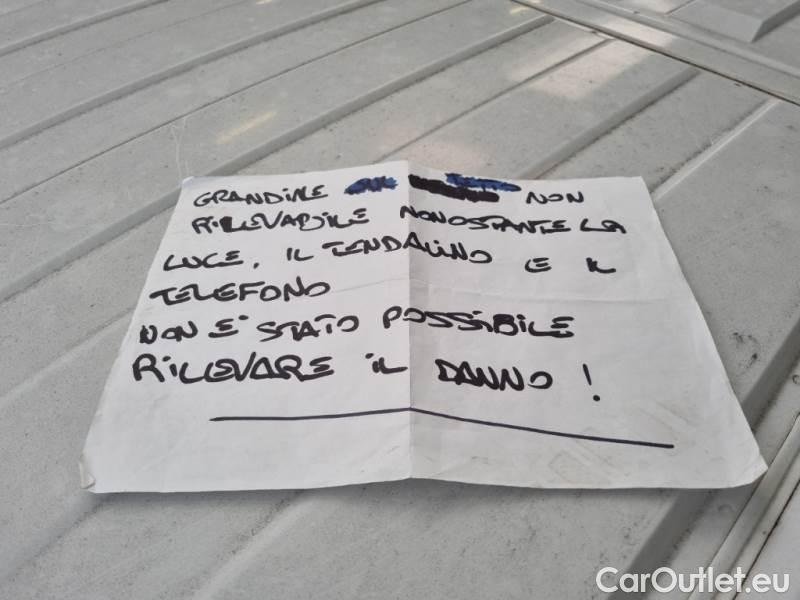 GRANDINE NON
RILEVABILE NONOSTANTE LA
LUCE, IL TENDALINO E IL
TELEFONO
NON E' STATO POSSIBILE
RILEVARE IL DANNO!
CarOutlet.eu